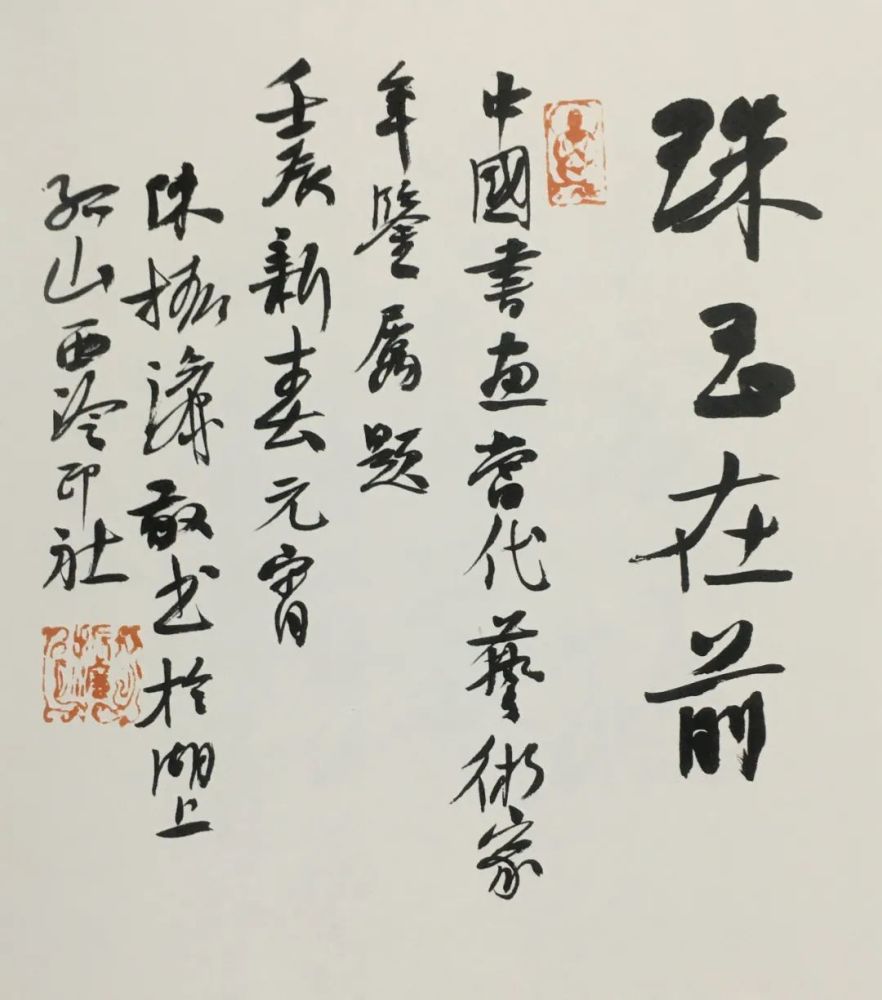 珠玉在前
中國書画當代藝術家
年鑒属題
壬辰新春元宵
陳振濂敬书於湖上
孤山西泠印社